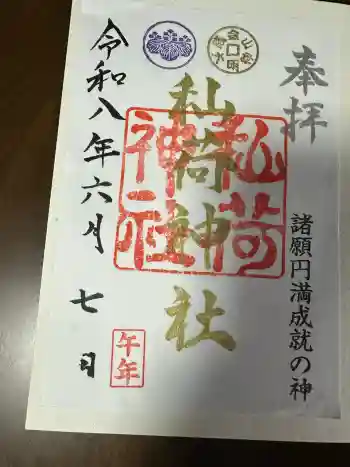 奉拝
諸願円満成就の神
私荷神社
私荷
神社
令和八年六月七日
午年